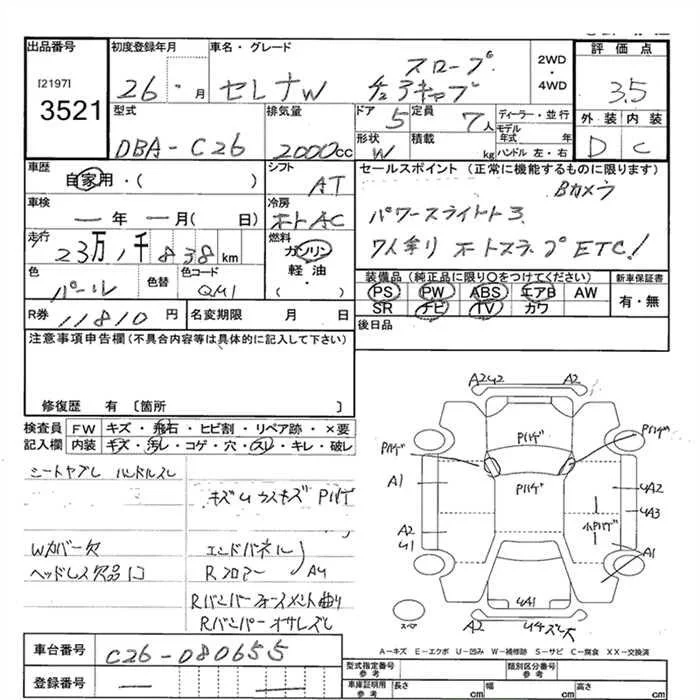 出品番号
[2197]
3521
初度登録年月
26・月
車名・グレード
セレナW スロープ チェアキャブ
2WD・4WD
評価点
3.5
外装 内装
D C
型式
DBA-C26
排気量
2000cc
ドア 5
定員 7人
形状 W
積載 kg
ディーラー・並行
モデル年式 年
ハンドル 左・右
車歴
自家用・( )
シフト
AT
車検
ー年ー月( 日)
冷房
オートAC
走行
23万1千838km
燃料
ガソリン
軽油
( )
色
パール
色替
色コード
QM1
R券
11810円
名変期限 月 日
セールスポイント(正常に機能するものに限ります)
Bカメラ
パワースライド
7人乗り オートスロープ ETC!
装備品(純正品に限り○をつけてください)
PS PW ABS エアB AW
SR ナビ TV カワ
新車保証書
有・無
後日品
注意事項申告欄(不具合内容等は具体的に記入して下さい)
修復歴 有〔箇所 〕
検査員記入欄
FW キズ・飛石・ヒビ割・リペア跡・×要
内装 キズ・汚レ・コゲ・穴・スレ・キレ・破レ
シートヤブレ ハンドルスレ
キズU ウスキズ Pハゲ
Wカバー欠
ヘッドレス欠品1コ
エンドパネル
Rフロアー
AU
Rバンパーホースメント曲り
Rバンパーオサレズレ
A2U2 A2
Pハゲ Pハゲ Pハゲ
A1 Pハゲ
UA2
UA3
小Pハゲ
A2
U1
A1
UA1
スペア
A2 Uキズ大
A-キズ E-エクボ U-凹み W-補修跡 S-サビ C-腐食 XX-交換済
車台番号
C26-080655
登録番号
ー ー
型式指定番号 参考
類別区分番号 参考
車庫証明用 参考
長さ cm 幅 cm 高さ cm